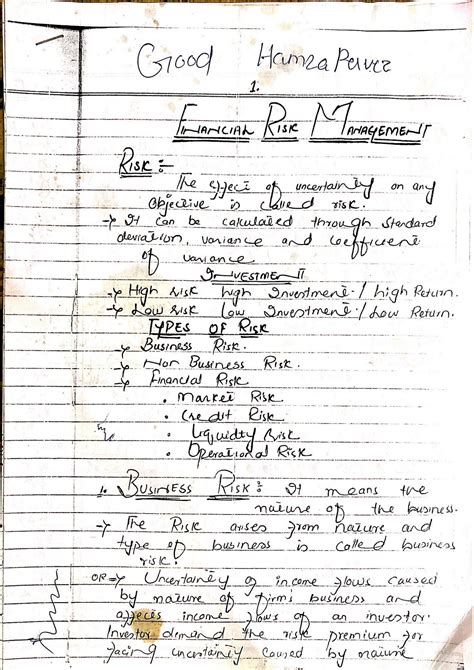 Good Hamza Pervez
1.
FINANCIAL RISK MANAGEMENT
RISK :-
The effect of uncertainty on any
objective is called risk.
→ It can be calculated through standard
deviation, variance and coefficient
of variance.
INVESTMENT
→ High risk high Investment / high Return.
→ Low risk low Investment / Low Return.
TYPES OF RISK
→ Business Risk.
→ Non Business Risk.
→ Financial Risk
• Market Risk
• Credit Risk
• Liquidty Risk
• Operational Risk
1. BUSINESS RISK: It means the
nature of the business.
→ The Risk arises from nature and
type of business is called business
risk.
OR → Uncertainty of income flows caused
by nature of firm's business and
affects income flows of an investor.
Investor demand the risk premium for
facing uncertainty caused by nature